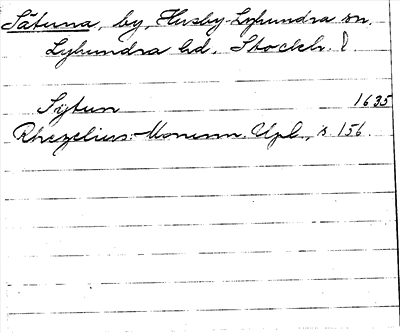 Sätuna, by, Husby-Lyhundra sn.
Lyhundra hd, Stockh. l.
Sÿtun 1635
Rhezelius: Monum. Upl., s 156.